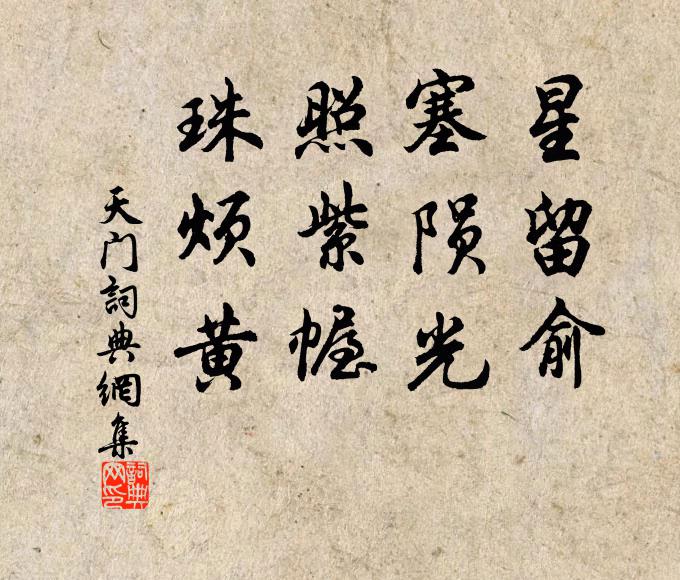 星留俞
塞陨光
照紫幄
珠烦黄
天门詞典網集
詞典网印